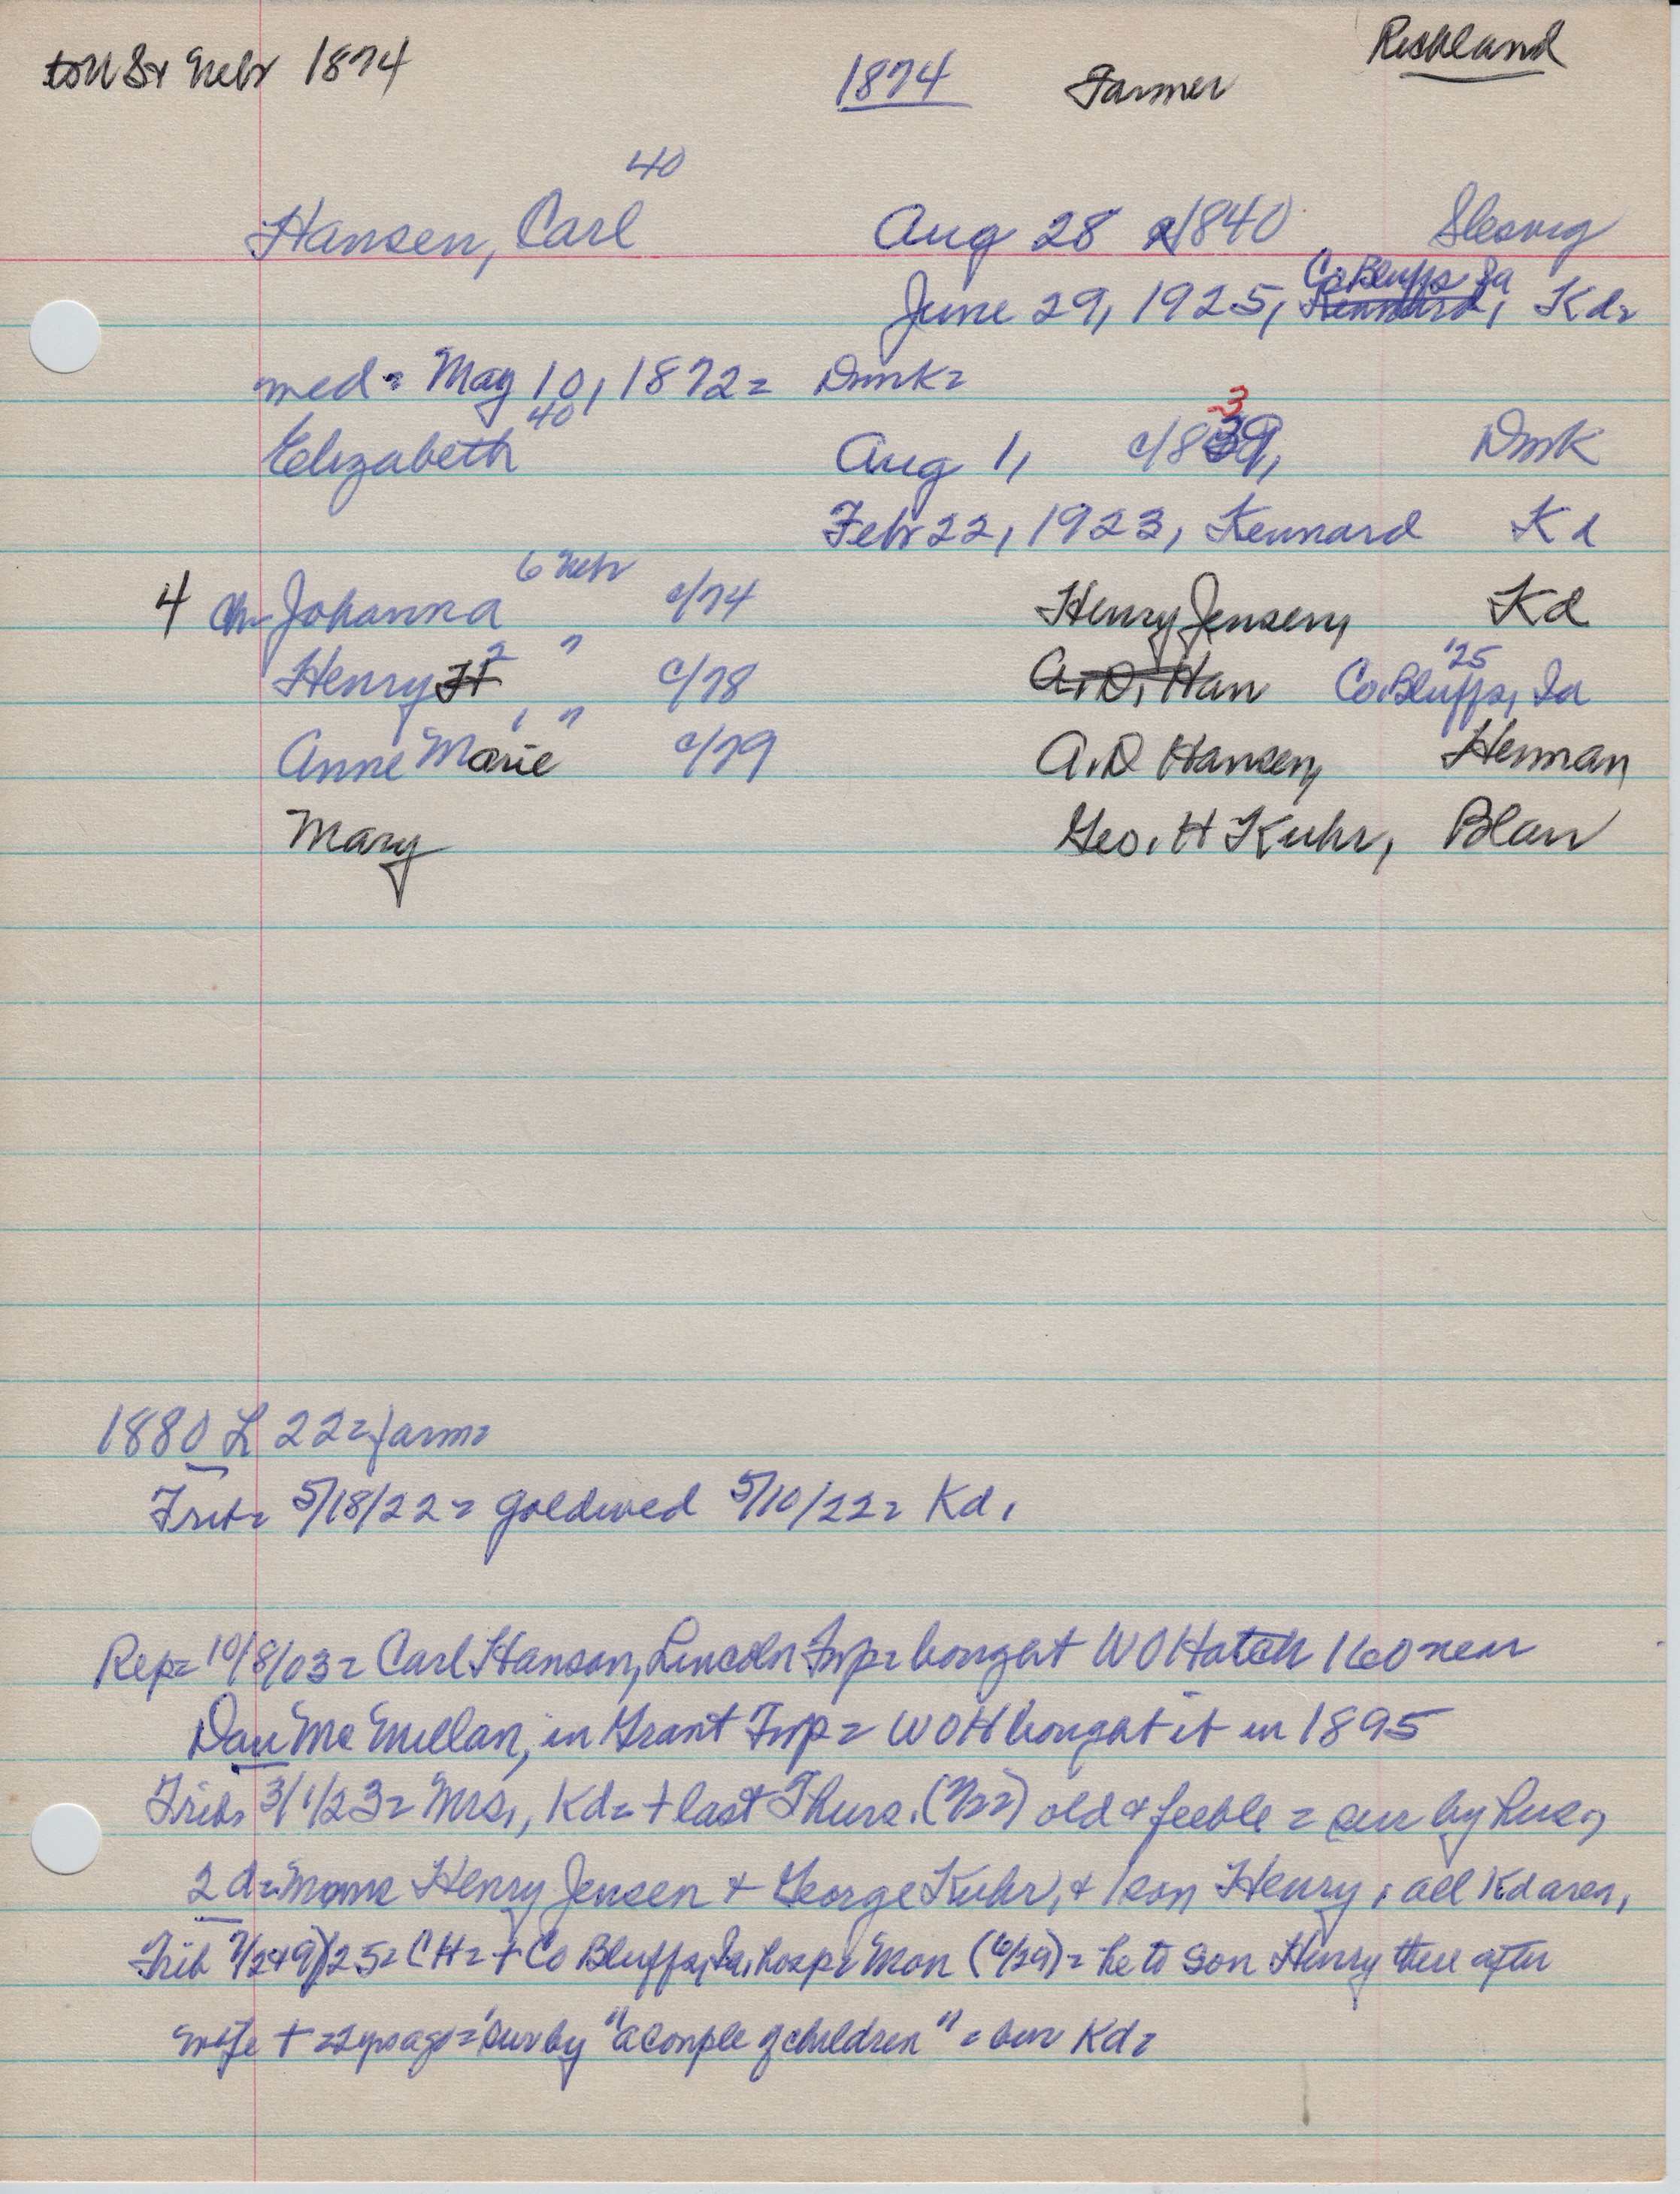 to US & Nebr 1874 1874 Farmer Richland
40
Hansen, Carl Aug 28 c/1840 Slesvig
Co. Bluffs Ia
June 29, 1925, Kennard, Kd=
med = May 10, 1872 = Dmk =
40 3
Elizabeth Aug 1, c/839, Dmk
Febr 22, 1923, Kennard Kd
6 Nebr
4 Ch- Johanna c/74 Henry Jensen, Kd
2 " '25
Henry H c/78 A. D. Han Co. Bluffs, Ia
1 "
Anne Marie c/79 A. D Hansen, Herman
Mary Geo. H Kuhr, Blair
1880 L 22 = farm =
Trib = 5/18/22 = gold wed 5/10/22 = Kd.
Rep = 10/8/03 = Carl Hanson, Lincoln Twp = bought W O Hatch 160 near
Dan McMillan, in Grant Twp = WOH bought it in 1895
Trib. 3/1/23 = Mrs., Kd = + last Thurs. (2/22) old & feeble = sur by hus.,
2 d = Mmes Henry Jensen + George Kuhr, + 1 son Henry, all Kd area,
Trib 7/2+9/25 = CH = + Co Bluffs, Ia, hosp = Mon (6/29) = he to son Henry there after
wife + = 2 yrs ago = sur by "a couple of children" = bur Kd =